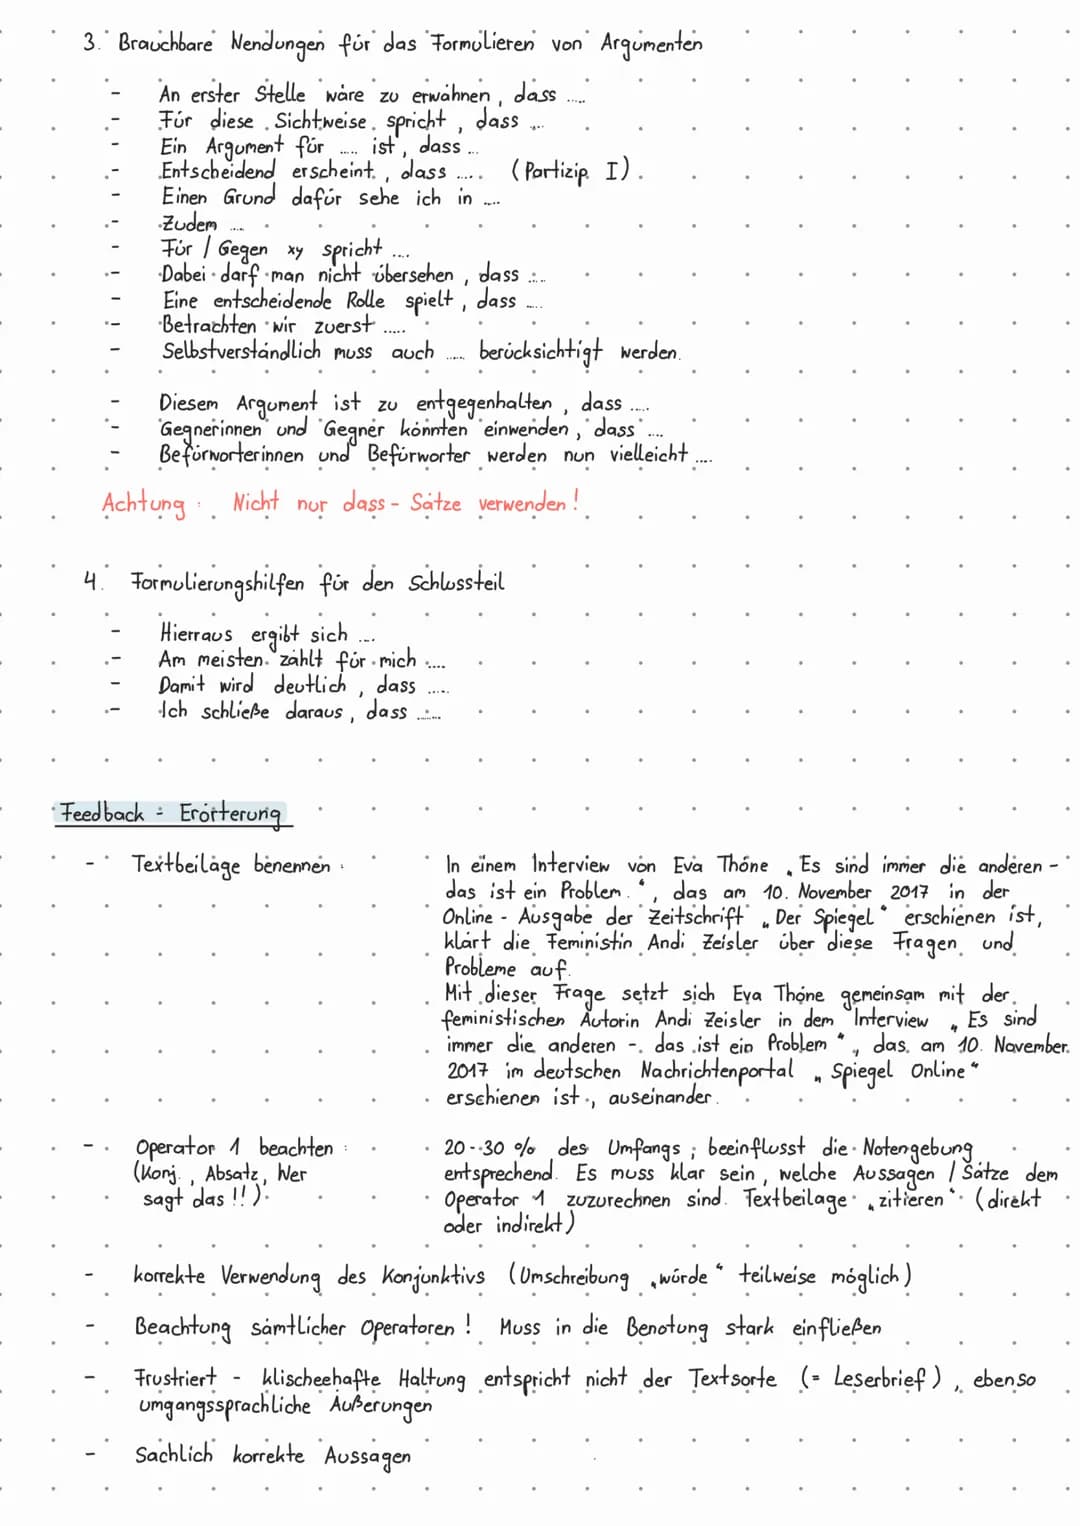 3. Brauchbare Wendungen für das Formulieren von Argumenten
- An erster Stelle wäre zu erwähnen, dass .....
- Für diese Sichtweise spricht, dass ....
- Ein Argument für ..... ist, dass ...
- Entscheidend erscheint, dass ..... (Partizip I)
- Einen Grund dafür sehe ich in ....
- Zudem ....
- Für / Gegen xy spricht ....
- Dabei darf man nicht übersehen, dass ....
- Eine entscheidende Rolle spielt, dass ....
- Betrachten wir zuerst .....
- Selbstverständlich muss auch ..... berücksichtigt werden.
- Diesem Argument ist zu entgegenhalten, dass .....
- Gegnerinnen und Gegner könnten einwenden, dass ....
- Befürworterinnen und Befürworter werden nun vielleicht ....
Achtung: Nicht nur dass-Sätze verwenden!
4. Formulierungshilfen für den Schlussteil
- Hierraus ergibt sich ....
- Am meisten zählt für mich ....
- Damit wird deutlich, dass .....
- Ich schließe daraus, dass .....
Feedback - Erörterung
- Textbeilage benennen:
In einem Interview von Eva Thöne „Es sind immer die anderen -
das ist ein Problem.“, das am 10. November 2017 in der
Online-Ausgabe der Zeitschrift „Der Spiegel“ erschienen ist,
klärt die Feministin Andi Zeisler über diese Fragen und
Probleme auf.
Mit dieser Frage setzt sich Eva Thöne gemeinsam mit der
feministischen Autorin Andi Zeisler in dem Interview „Es sind
immer die anderen - das ist ein Problem“, das am 10. November
2017 im deutschen Nachrichtenportal „Spiegel Online“
erschienen ist, auseinander.
- Operator 1 beachten:
(Konj., Absatz, Wer
sagt das!!)
20-30 % des Umfangs; beeinflusst die Notengebung
entsprechend. Es muss klar sein, welche Aussagen / Sätze dem
Operator 1 zuzurechnen sind. Textbeilage „zitieren“ (direkt
oder indirekt)
- korrekte Verwendung des Konjunktivs (Umschreibung „würde“ teilweise möglich)
- Beachtung sämtlicher Operatoren! Muss in die Benotung stark einfließen
- Frustriert - klischeehafte Haltung entspricht nicht der Textsorte (= Leserbrief), ebenso
umgangssprachliche Äußerungen
- Sachlich korrekte Aussagen